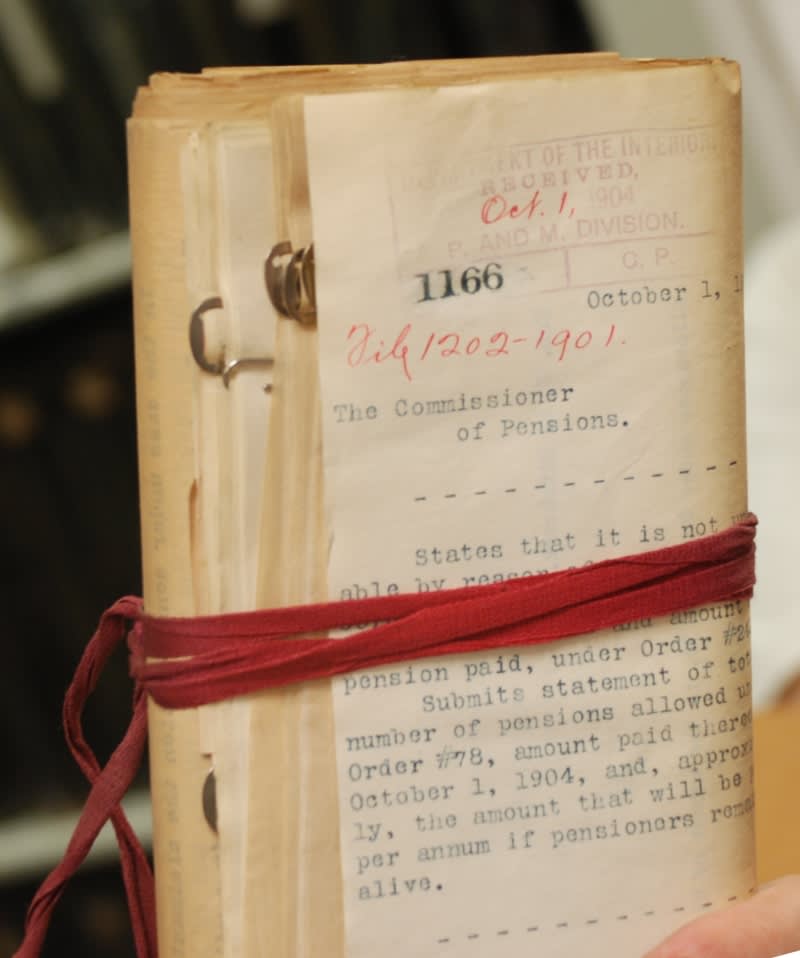 OF THE INTERIOR.
RECEIVED,
Oct. 1, 1904
P. AND M. DIVISION.
1166
C. P.
October 1, 1
File 1202-1901.
The Commissioner
of Pensions.
- - - - - - - - - - - -
States that it is not
able by reason of
and amount
pension paid, under Order #2
Submits statement of tot
number of pensions allowed un
Order #78, amount paid there
October 1, 1904, and, approx
ly, the amount that will be
per annum if pensioners rema
alive.
- - - - - - - - - - - -